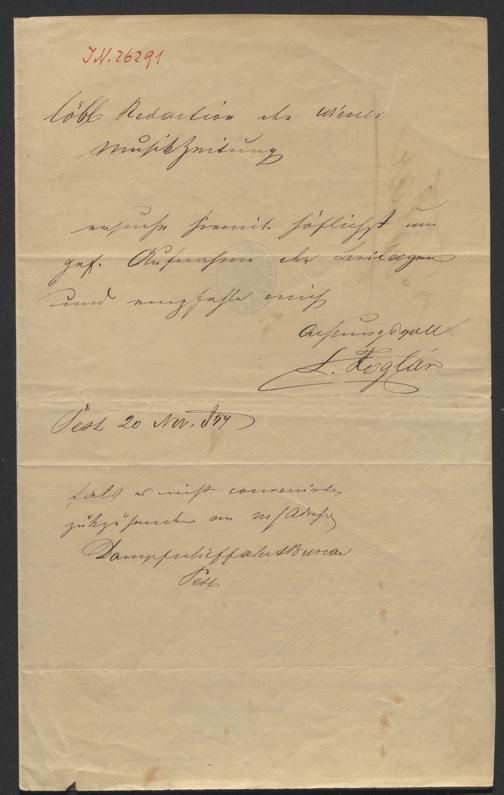 J.N. 26291
Löbl Redaction der Wiener
Musikzeitung
ersuche hiemit höflichst um
gef. Aufnahme der Beilagen
und empfehle mich
Achtungsvoll
L. Foglár
Pest 20 Nov.
falls es nicht convenirte,
zurückzusenden an m/Adresse
Dampfschifffahrts Bureau
Pest